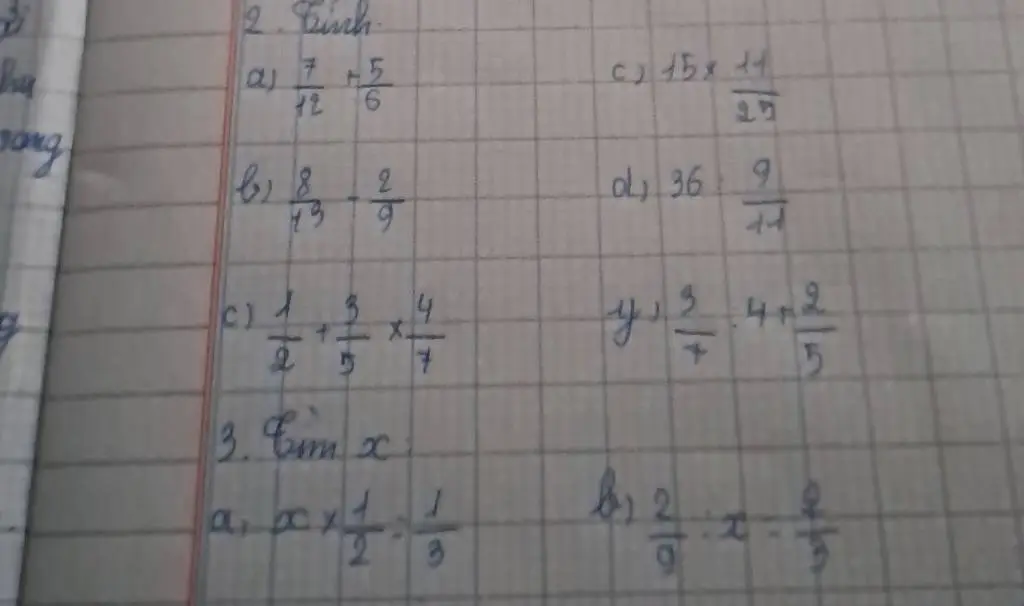 2. Tính.
a) 7/12 + 5/6    c) 15 × 11/25
b) 8/13 - 2/9    d) 36 : 9/11
c) 1/2 + 3/5 × 4/7    y) 3/7 : 4 + 2/5
3. Tìm x
a, x × 1/2 = 1/3    b) 2/9 : x = 2/3